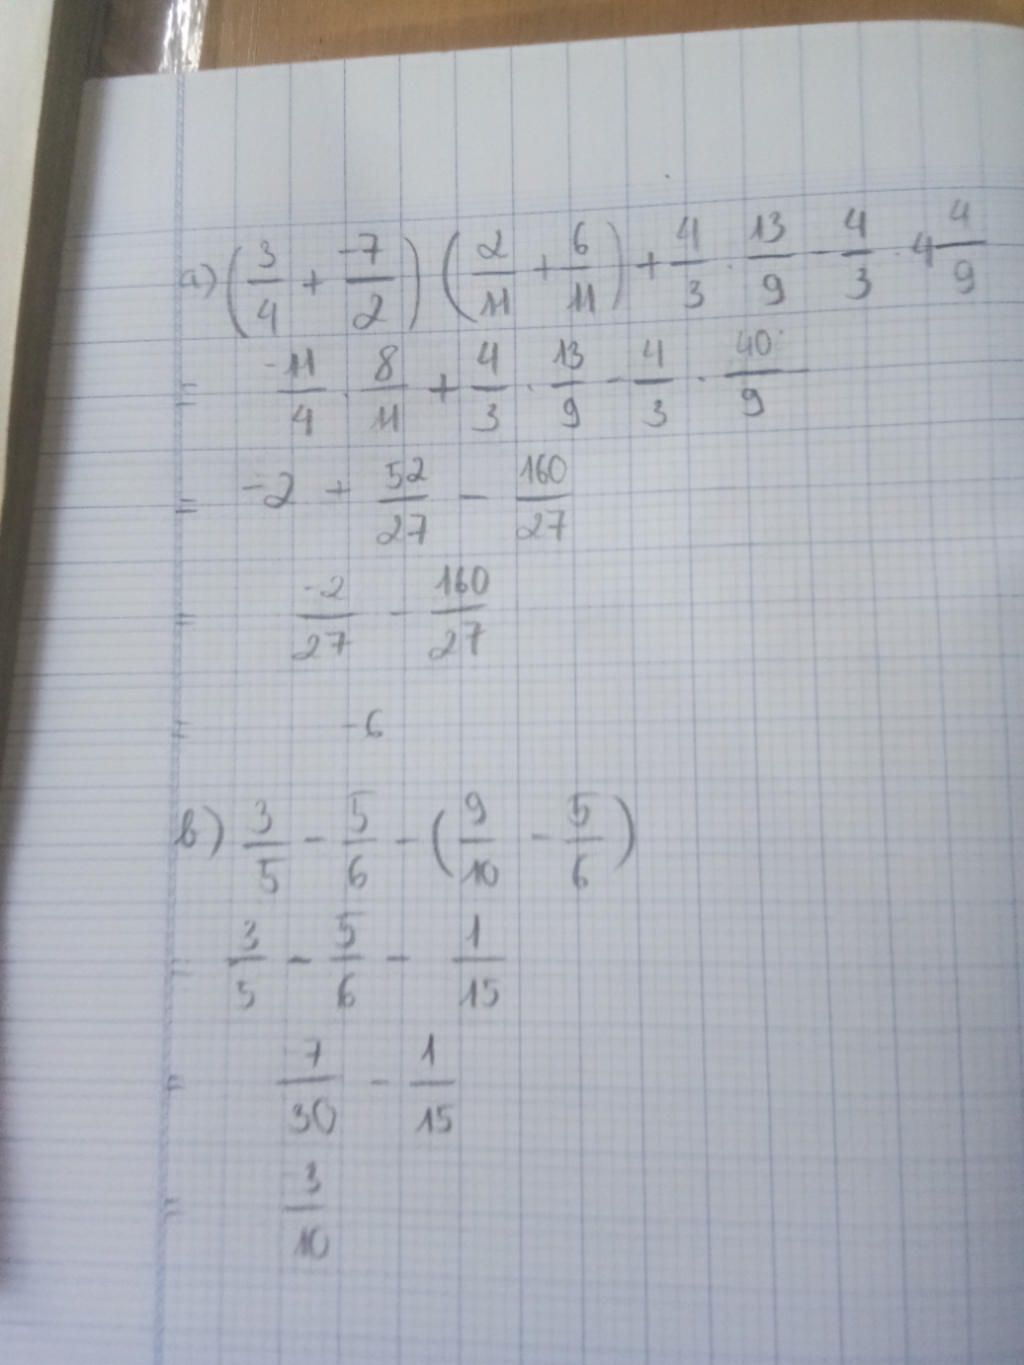 a) (3/4 + -7/2) (2/11 + 6/11) + 4/3 . 13/9 - 4/3 . 4 4/9
= -11/4 . 8/11 + 4/3 . 13/9 - 4/3 . 40/9
= -2 + 52/27 - 160/27
= -2/27 - 160/27
= -6
b) 3/5 - 5/6 - (9/10 - 5/6)
= 3/5 - 5/6 - 1/15
= -7/30 - 1/15
= -3/10